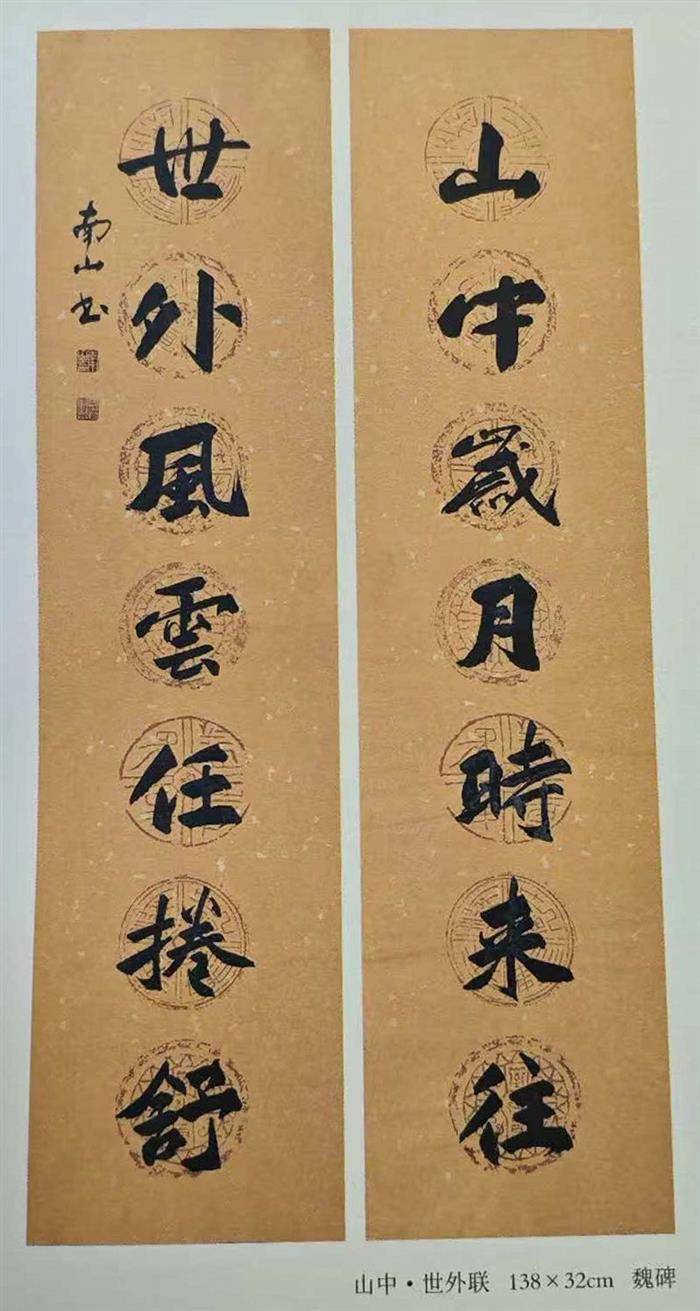 山中歲月時来往
世外風雲任捲舒
南山书
山中·世外联 138×32cm 魏碑